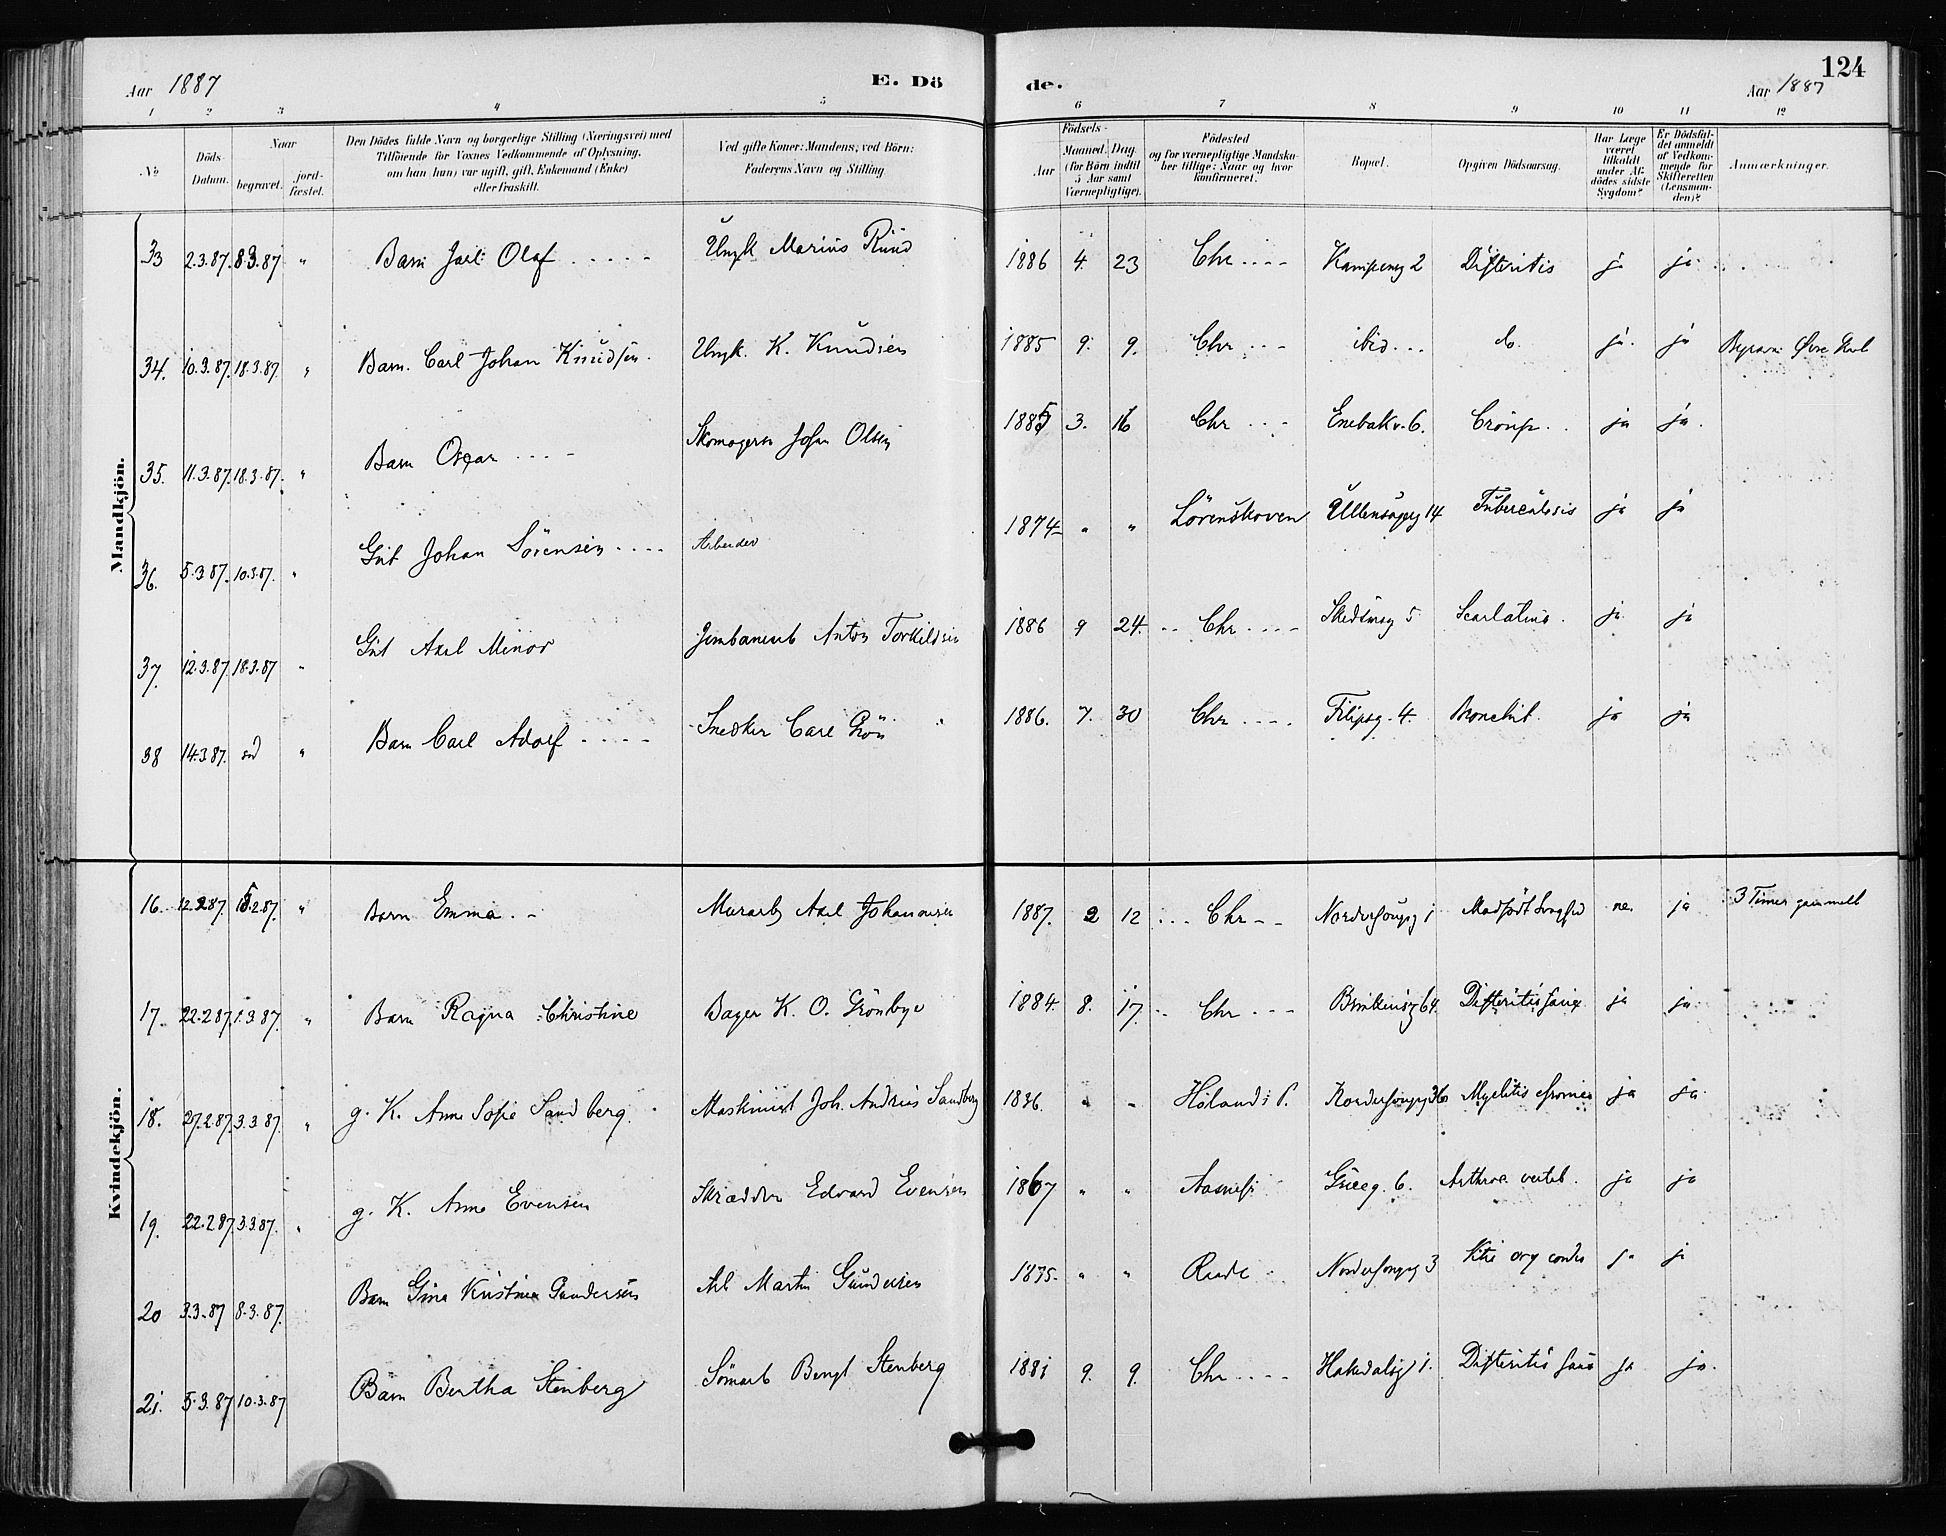 Aar 1887 E. Dö de. Aar 1887 124
1 2 3 4 5 6 7 8 9 10 11 12
No
Döds-Datum.
Naar begravet. jord-fæstet.
Den Dödes fulde Navn og borgerlige Stilling (Næringsvei) med
Tilföiende for Voxnes Vedkommende af Oplysning,
om han (hun) var ugift, gift, Enkemand (Enke)
eller fraskilt.
Ved gifte Koner: Mandens; ved Börn:
Faderens Navn og Stilling
Födsels-
Aar Maaned. Dag.
(for Börn indtil
5 Aar samt
Værnepligtige).
Födested
og for værnepligtige Mandsku-
ber tillige: Naar og hvor
konfirmeret.
Bopæl.
Opgiven Dödsaarsag.
Har Læge
været
tilkaldt
under Af-
dödes sidste
Sygdom?
Er Dödsfal-
det anmeldt
af Vedkom-
mende for
Skifteretten
(Lensman-
den)?
Anmærkninger.
Mandkjön.
33 2.3.87. 8.3.87 " Barn Jarl Olaf Marius Ruud 1886 4. 23 Chr Kampeng 2 Difteritis ja ja
34. 10.3.87. 18.3.87. " Barn. Carl Johan Knudsen. K. Knudsen 1885 9. 9. Chr ibid do. ja. ja
35. 11.3.87. 18.3.87. " Barn Oscar Skomager John Olsen 1885 3. 16 Chr Enebakv. 6. Croup ja ja.
36. 5.3.87. 10.3.87. " Gut Johan Sörensen Arbeider 1874 " " Lörenskoven Ullensagg 14 Tuberculosis ja ja
37. 12.3.87. 18.3.87 " Gut Axel Minor Anton Torkildsen 1886 9 24. Chr Skedsmog 5 Scarlatina. ja ja
38 14.3.87. " Barn Carl Adolf Snedker Carl Grön 1886. 7. 30 Chr Filipsg. 4. Bronchit. ja ja
Kvindekjön.
16. 12.2.87. 18.2.87. " Barn Emma. Murarb Axel Johannesen 1887. 2 12 Chr Norderhougsg 1 ja 3 Timer gammelt
17. 22.2.87. 1.3.87. " Barn Ragna Christine Bager K. O. Grönbye 1884. 8. 17. Chr 64. Difteritis ja ja
18. 27.2.87. 3.3.87. " g. K. Anne Sofie Sandberg. Maskinist Joh. Andreas Sandberg 1836. " " Hölands P. Norderhougsg 36 Myelitis ja ja
19. 22.2.87. 3.3.87. " g. K. Anne Evensen Skrædder Edvard Evensen 1867 " " 6. ja ja
20 3.3.87 8.3.87. Barn Gina Kristina Gundersen Arb Martin Gundersen 1875. " " Norderhougsg 3 ja ja
21. 5.3.87 10.3.87 Barn Bertha Stenberg Sömarb Bengt Stenberg 1881 9. 9. Chr Hakedalsg 1. Difteritis ja ja.